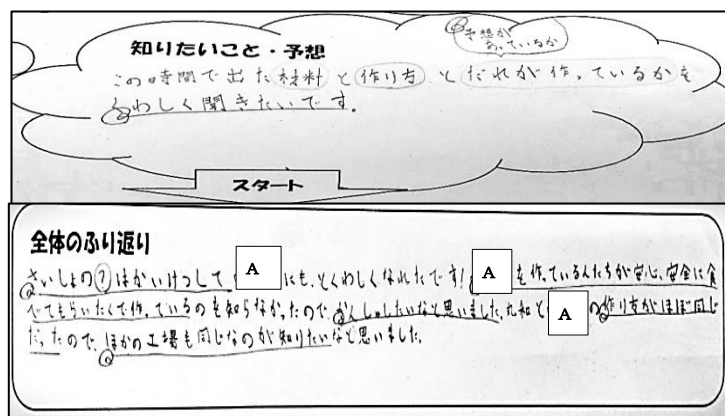 予想が
あっているか
知りたいこと・予想
この時間で出た材料と作り方とだれが作っているかを
くわしく聞きたいです。
スタート
全体のふり返り
さいしょの?はかいけつして A にも、とくわしくなれたです! A を作っている人たちが安心、安全に食
べてもらいたくて作っているのを知らなかったので、かんしゃしたいなと思いました。丸和と A の作り方がほぼ同じ
だったので、ほかの工場も同じなのが知りたいなと思いました。